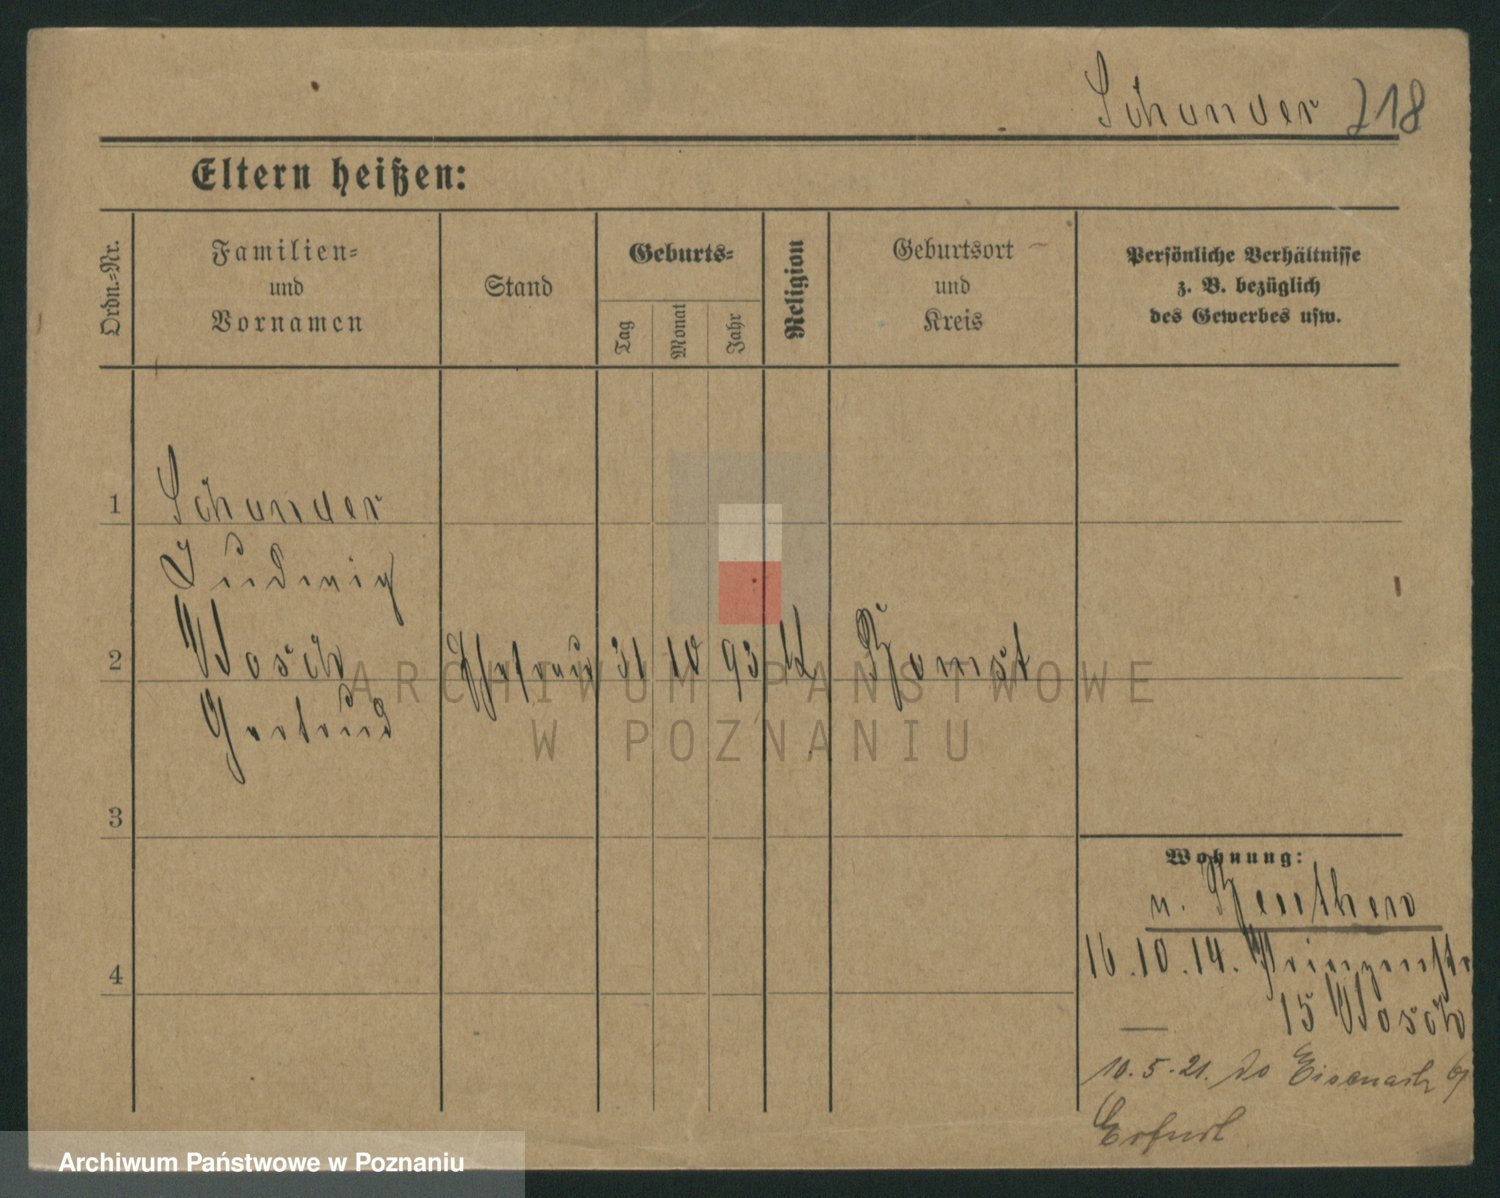 Schunder 718
Eltern heißen:
Ordn.-Nr.
Familien-
und
Vornamen
Stand
Geburts-
Tag
Monat
Jahr
Religion
Geburtsort
und
Kreis
Persönliche Verhältnisse
z. B. bezüglich
des Gewerbes usw.
1 Schunder
Ludwig
2 Wosch Ehefrau 31 10 93 Bomst
Gertrud
3
4
Wohnung:
n. Beuthen
16.10.14. Prinzenstr
15 Wosch
10.5.21. Eisenach
Erfurt
ARCHIWUM PAŃSTWOWE
W POZNANIU
Archiwum Państwowe w Poznaniu